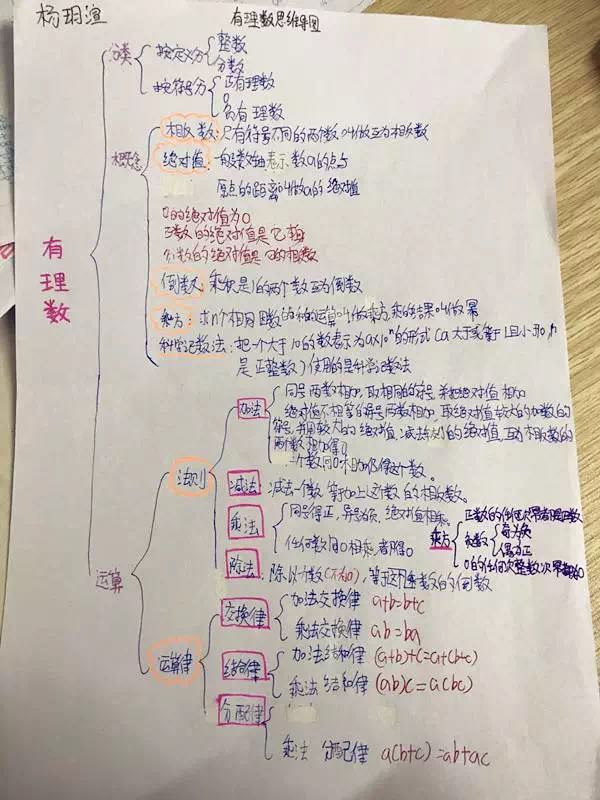 杨玥渲
有理数思维导图
有理数
分类
按定义分
整数
分数
按符号分
正有理数
0
负有理数
概念
相反数：只有符号不同的两个数叫做互为相反数
绝对值：一般数轴表示数a的点与
原点的距离叫做a的绝对值
0的绝对值为0
正数的绝对值是它
负数的绝对值是它的相反数
倒数：乘积是1的两个数互为倒数
乘方：求n个相同因数的积的运算叫做乘方，乘的结果叫做幂
科学记数法：把一个大于10的数表示为a×10ⁿ的形式（a大于或等于1且小于10，n
是正整数）使用的是科学记数法
运算
法则
加法
同号两数相加，取相同的符号，并把绝对值相加
绝对值不相等的异号两数相加，取绝对值较大的加数的
符号，并用较大的绝对值减去较小的绝对值，互为相反数的
两个数相加得0
一个数同0相加仍得这个数。
减法：减去一个数，等于加上这个数的相反数。
乘法
同号得正，异号为负，绝对值相乘。
任何数同0相乘，都得0
乘方
正数的任何次幂都是正数
负数
奇为负
偶为正
0的任何次正整数次幂都为0
除法：除以个数（不为0），等于乘这个数的倒数
运算律
交换律
加法交换律 a+b=b+c
乘法交换律 ab=ba
结合律
加法结合律 (a+b)+c=a+(b+c)
乘法结合律 (ab)c=a(bc)
分配律
乘法 分配律 a(b+c)=ab+ac